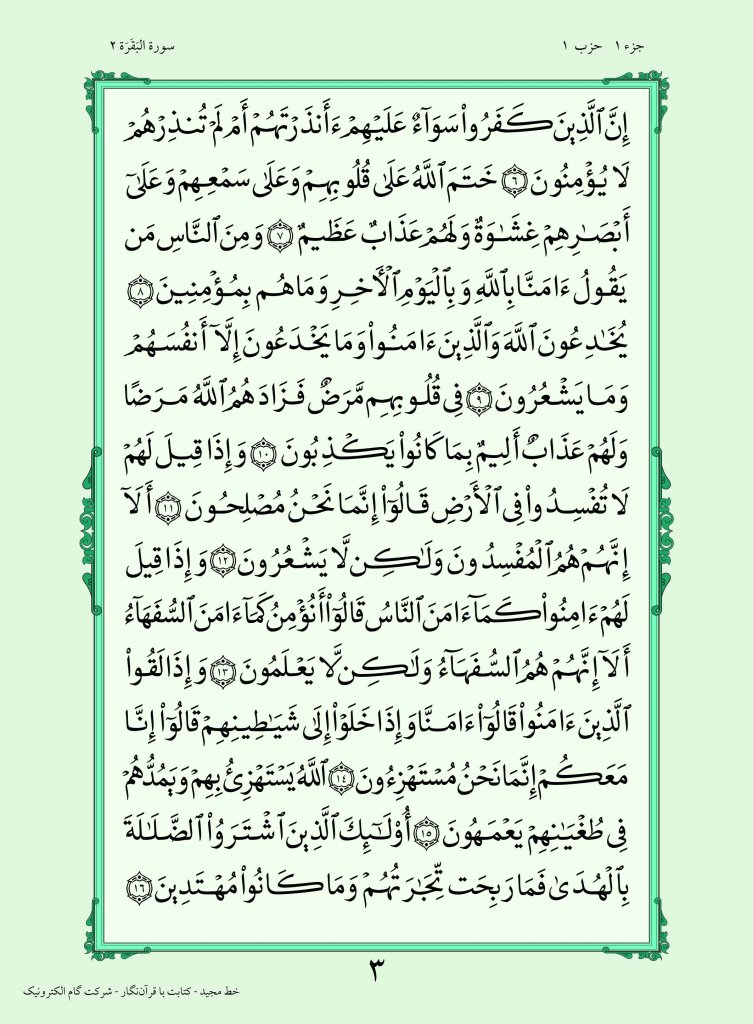 جزء ۱ حزب ۱
سورة البَقَرَة ۲
إِنَّ ٱلَّذِينَ كَفَرُوا۟ سَوَآءٌ عَلَيْهِمْ ءَأَنذَرْتَهُمْ أَمْ لَمْ تُنذِرْهُمْ
لَا يُؤْمِنُونَ ۝٦ خَتَمَ ٱللَّهُ عَلَىٰ قُلُوبِهِمْ وَعَلَىٰ سَمْعِهِمْ وَعَلَىٰٓ
أَبْصَـٰرِهِمْ غِشَـٰوَةٌ وَلَهُمْ عَذَابٌ عَظِيمٌ ۝٧ وَمِنَ ٱلنَّاسِ مَن
يَقُولُ ءَامَنَّا بِٱللَّهِ وَبِٱلْيَوْمِ ٱلْـَٔاخِرِ وَمَا هُم بِمُؤْمِنِينَ ۝٨
يُخَـٰدِعُونَ ٱللَّهَ وَٱلَّذِينَ ءَامَنُوا۟ وَمَا يَخْدَعُونَ إِلَّآ أَنفُسَهُمْ
وَمَا يَشْعُرُونَ ۝٩ فِى قُلُوبِهِم مَّرَضٌ فَزَادَهُمُ ٱللَّهُ مَرَضًا
وَلَهُمْ عَذَابٌ أَلِيمٌ بِمَا كَانُوا۟ يَكْذِبُونَ ۝١٠ وَإِذَا قِيلَ لَهُمْ
لَا تُفْسِدُوا۟ فِى ٱلْأَرْضِ قَالُوٓا۟ إِنَّمَا نَحْنُ مُصْلِحُونَ ۝١١ أَلَآ
إِنَّهُمْ هُمُ ٱلْمُفْسِدُونَ وَلَـٰكِن لَّا يَشْعُرُونَ ۝١٢ وَإِذَا قِيلَ
لَهُمْ ءَامِنُوا۟ كَمَآ ءَامَنَ ٱلنَّاسُ قَالُوٓا۟ أَنُؤْمِنُ كَمَآ ءَامَنَ ٱلسُّفَهَآءُ
أَلَآ إِنَّهُمْ هُمُ ٱلسُّفَهَآءُ وَلَـٰكِن لَّا يَعْلَمُونَ ۝١٣ وَإِذَا لَقُوا۟
ٱلَّذِينَ ءَامَنُوا۟ قَالُوٓا۟ ءَامَنَّا وَإِذَا خَلَوْا۟ إِلَىٰ شَيَـٰطِينِهِمْ قَالُوٓا۟ إِنَّا
مَعَكُمْ إِنَّمَا نَحْنُ مُسْتَهْزِءُونَ ۝١٤ ٱللَّهُ يَسْتَهْزِئُ بِهِمْ وَيَمُدُّهُمْ
فِى طُغْيَـٰنِهِمْ يَعْمَهُونَ ۝١٥ أُو۟لَـٰٓئِكَ ٱلَّذِينَ ٱشْتَرَوُا۟ ٱلضَّلَـٰلَةَ
بِٱلْهُدَىٰ فَمَا رَبِحَت تِّجَـٰرَتُهُمْ وَمَا كَانُوا۟ مُهْتَدِينَ ۝١٦
۳
خط مجید - کتابت با قرآن‌نگار - شرکت گام الکترونیک